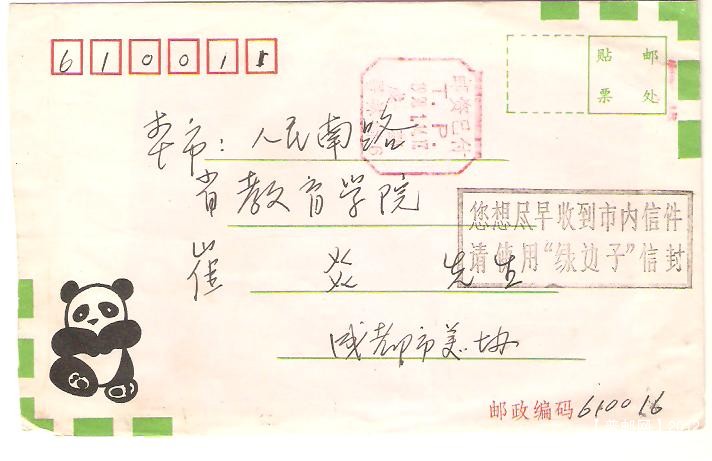 610011
贴 邮
票 处
邮资已付
本市：人民南路
省教育学院
您想尽早收到市内信件
请使用“绿边子”信封
崔 炎 先生
成都市美协
邮政编码 610016